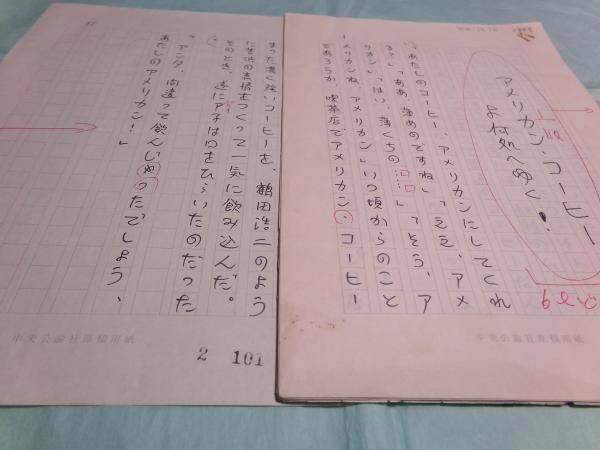 アメリカン・コーヒー
よ何処へゆく!
「あたしのコーヒー、アメリカンにしてくれ
る?」「ああ、薄めのですね」「ええ、アメ
リカン」「はい、薄くちの……」「そう、ア
メリカンね、アメリカン」いつ頃からのこと
であろうか、喫茶店でアメリカン・コーヒー
中央公論社原稿用紙
まった濃く強いコーヒーを、鶴田浩二のよう
に苦渋の表情をつくって一気に飲み込んだ。
そのとき、遂に子は口をひらいたのだった
。
「アンタ、間違って飲んじゃったでしょう、
あたしのアメリカン!」
中央公論社原稿用紙
2 101